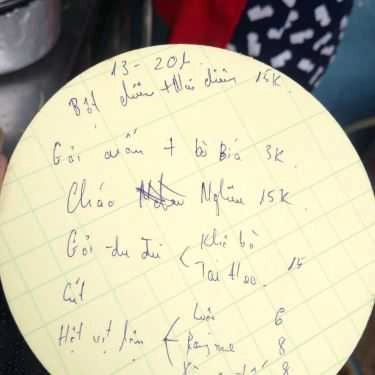 13 - 20t.
Bột chiên + Nui chiên 15K.
Gỏi cuốn + bò Bía 3K.
Cháo Nghêu 15K.
Gỏi đu đủ
Khô bò
Tai Heo. 15
Cút
Hột vịt lộn
Luộc 6
Rang me 8
8